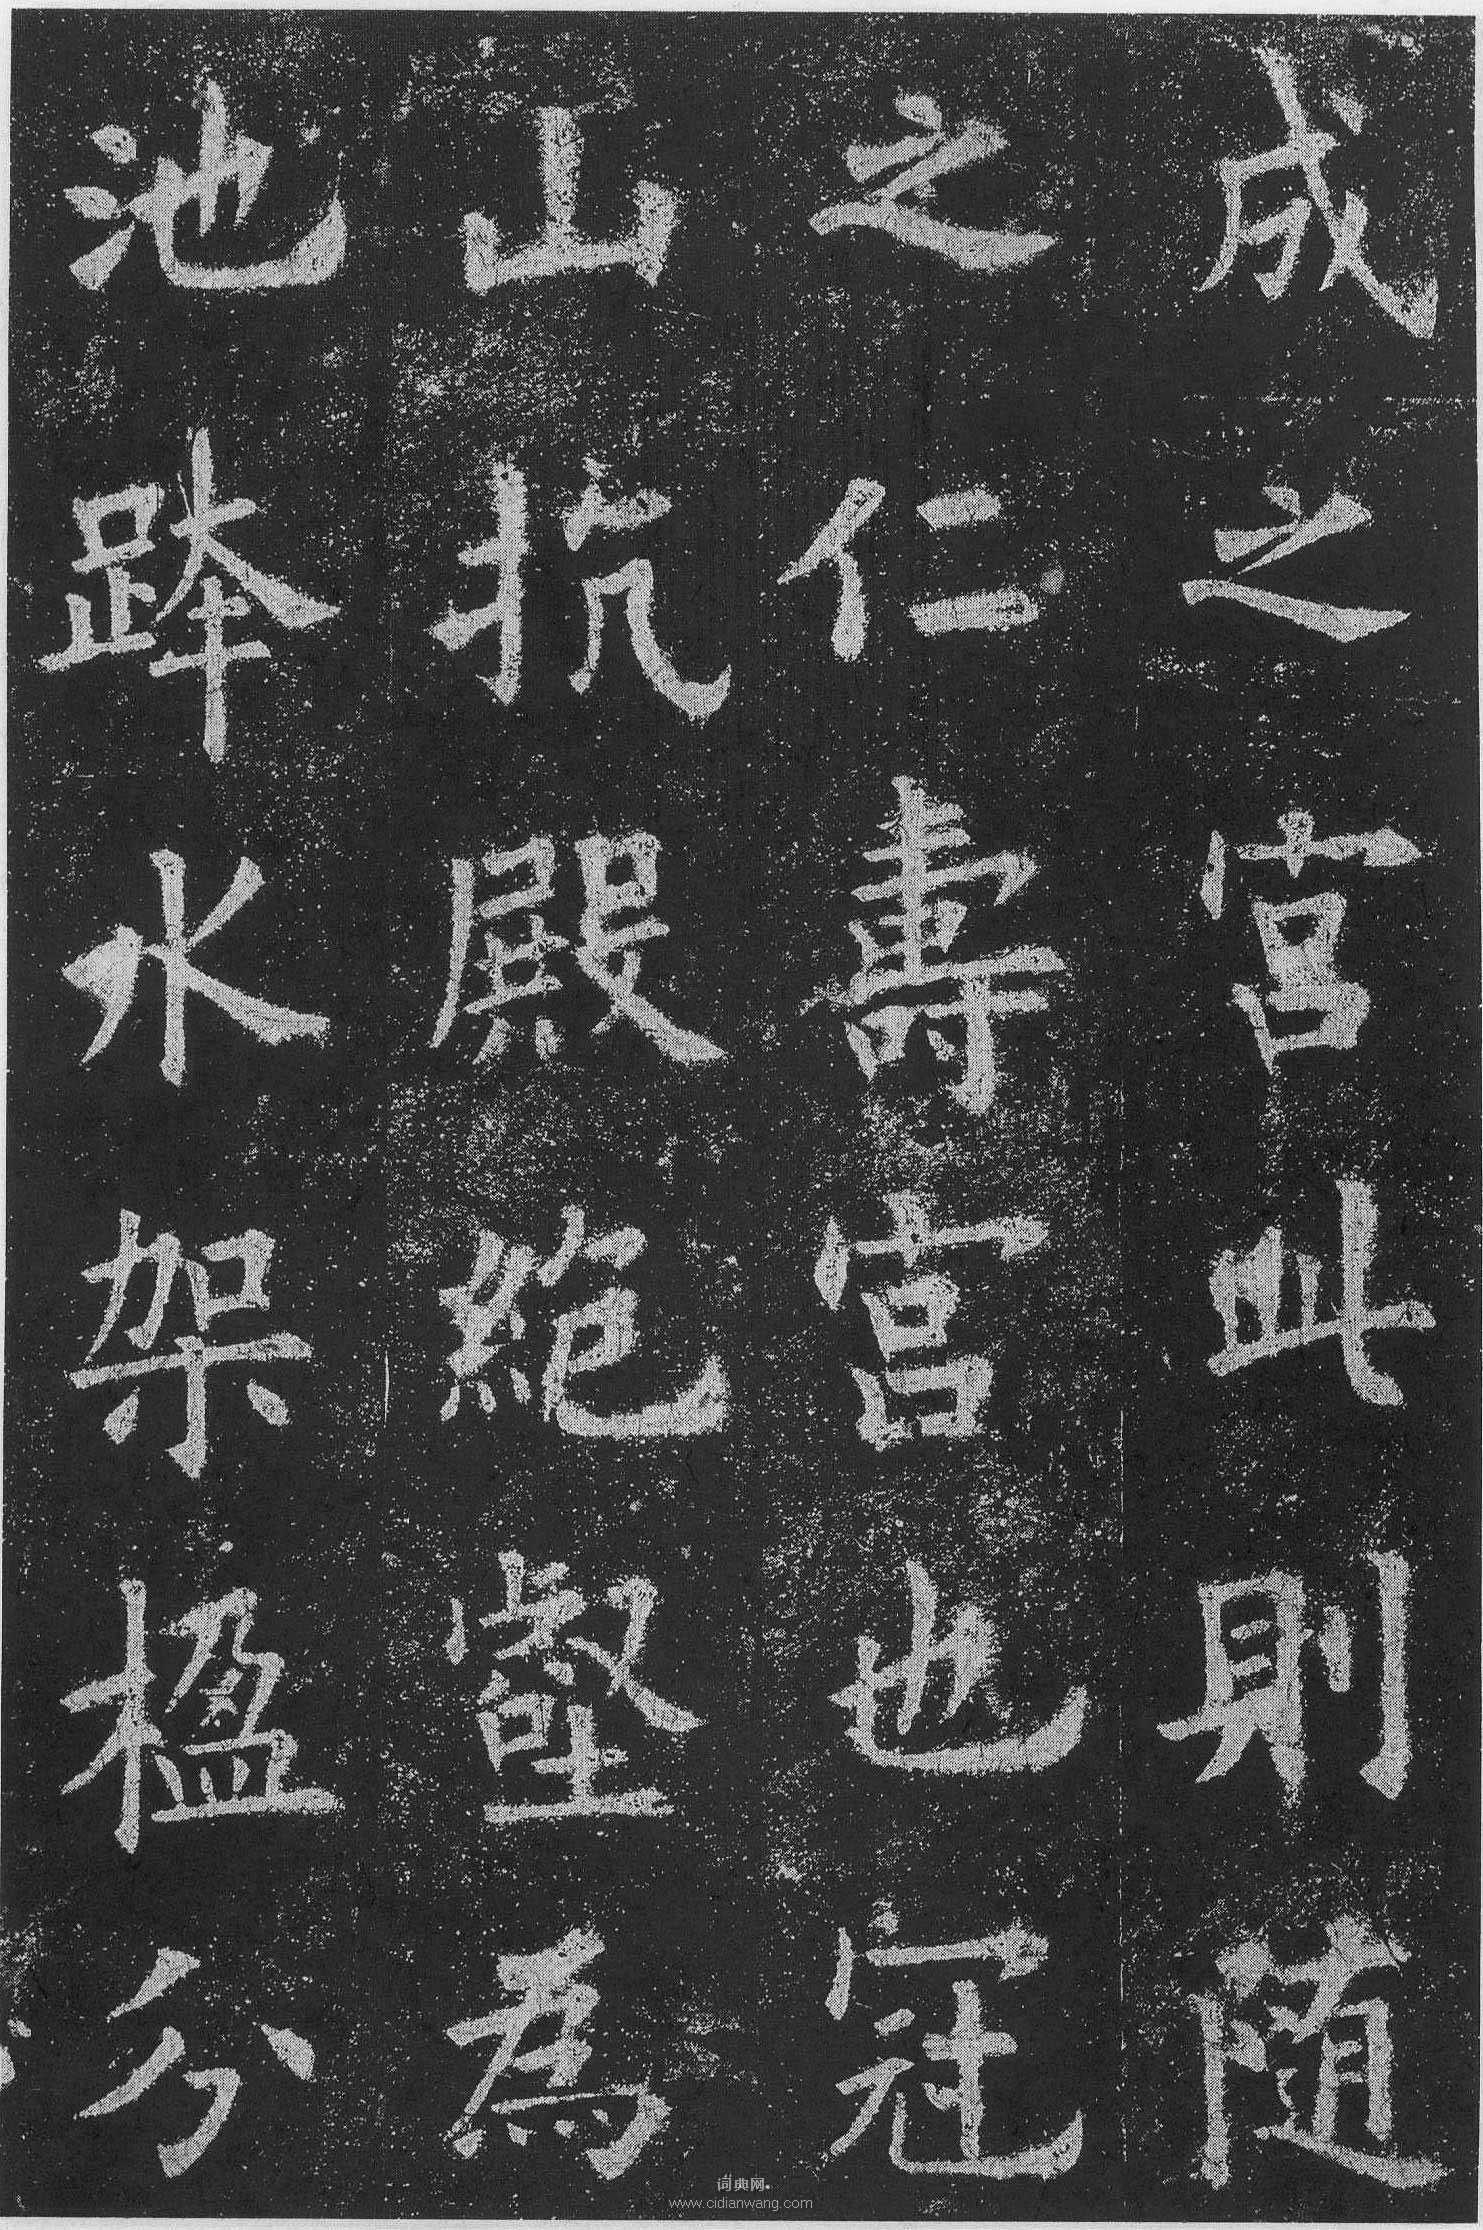 成之宫此則隨
之仁壽宫也冠
山抗殿絕壑為
池跨水架楹分
词典网
www.cidianwang.com